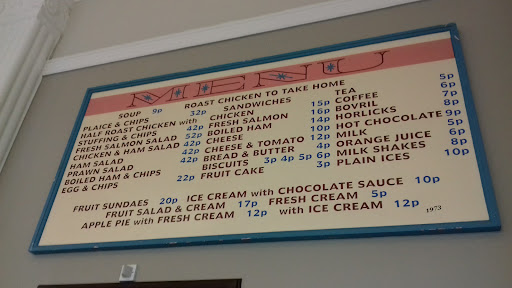 MENU
ROAST CHICKEN TO TAKE HOME
SOUP 9p
PLAICE & CHIPS 32p
HALF ROAST CHICKEN with
STUFFING & CHIPS 42p
FRESH SALMON SALAD 52p
CHICKEN & HAM SALAD 42p
HAM SALAD 42p
PRAWN SALAD 42p
BOILED HAM & CHIPS
EGG & CHIPS 22p
SANDWICHES
CHICKEN 15p
FRESH SALMON 16p
BOILED HAM 14p
CHEESE 10p
CHEESE & TOMATO 12p
BREAD & BUTTER 4p
BISCUITS 3p 4p 5p 6p
FRUIT CAKE 3p
TEA 5p
COFFEE 6p
BOVRIL 7p
HORLICKS 8p
HOT CHOCOLATE 9p
MILK 5p
ORANGE JUICE 6p
MILK SHAKES 8p
PLAIN ICES 10p
FRUIT SUNDAES 20p ICE CREAM with CHOCOLATE SAUCE 10p
FRUIT SALAD & CREAM 17p FRESH CREAM 5p
APPLE PIE with FRESH CREAM 12p with ICE CREAM 12p
1973